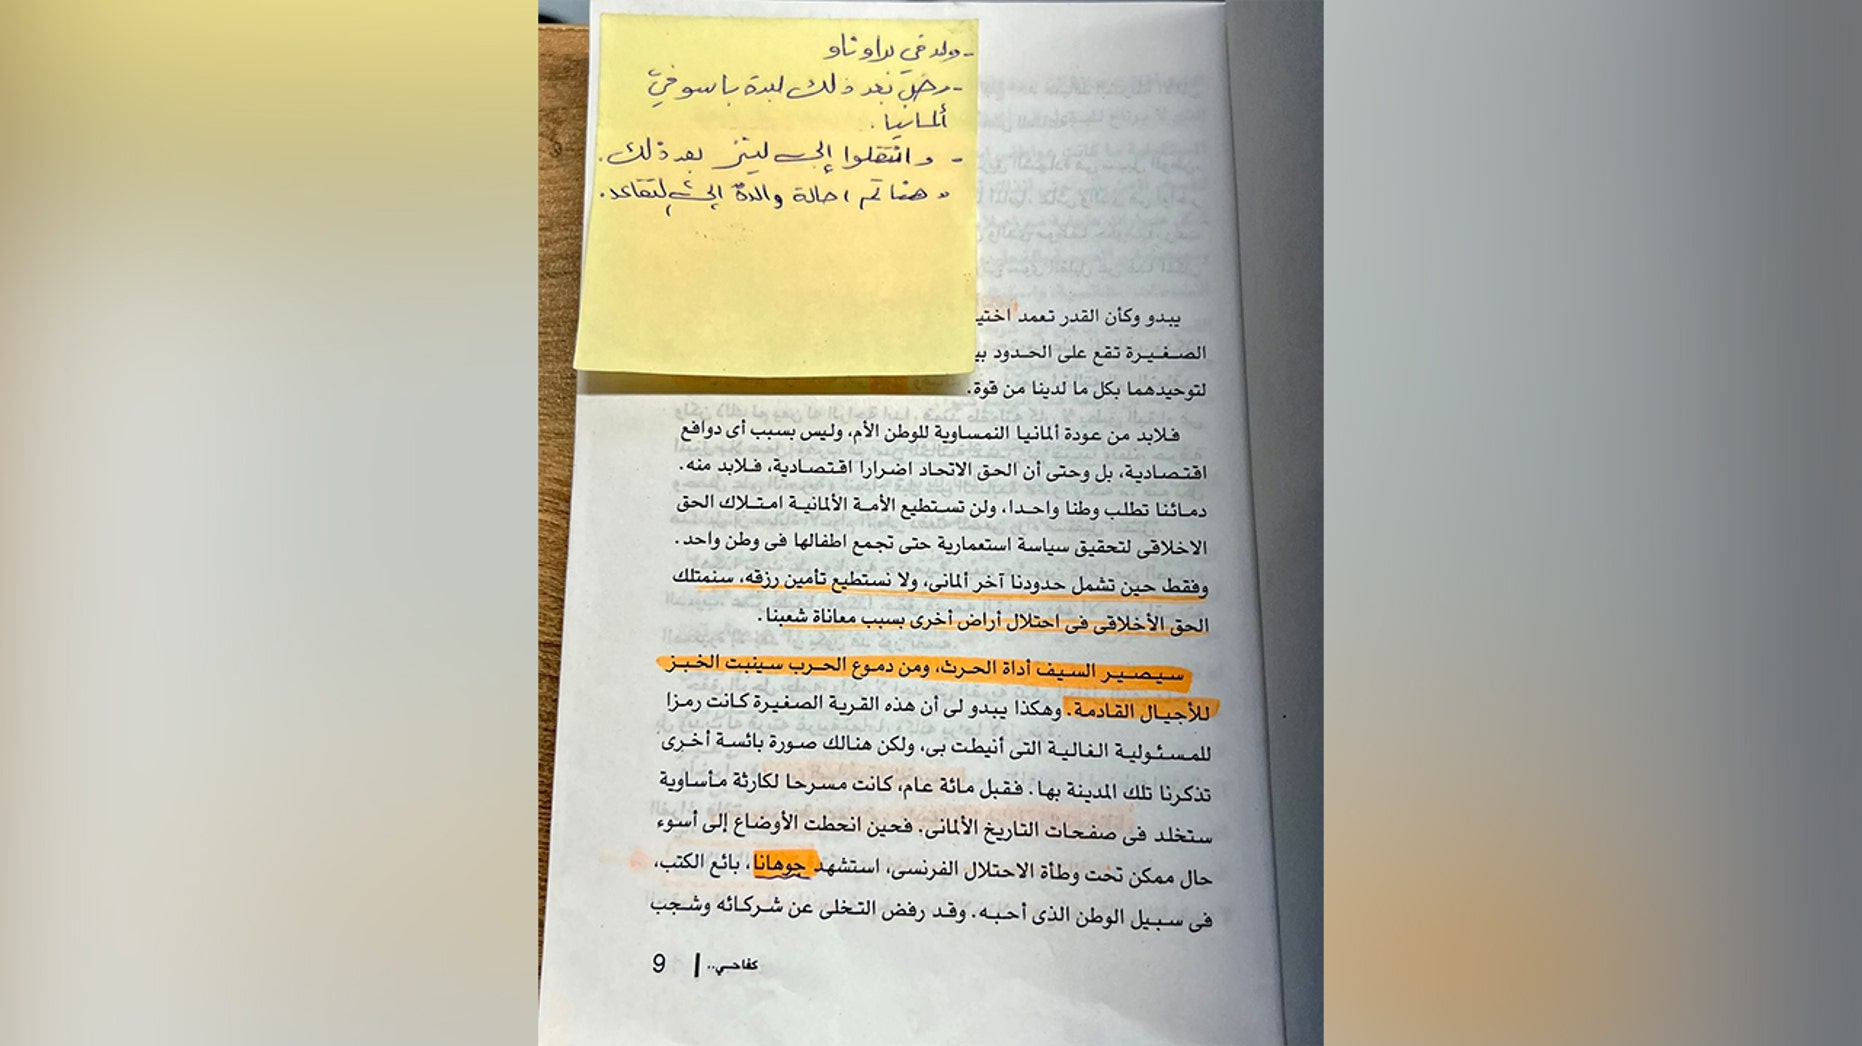 - ولد في براوناو
- رحل بعد ذلك لبدة باسو في
ألمانيا.
- وانتقلوا إلى لينز بعد ذلك.
" هنا تم احالة والدة إلى لتقاعد.
يبدو وكأن القدر تعمد اختي
الصغيرة تقع على الحدود بي
لتوحيدهما بكل ما لدينا من قوة.
فلابد من عودة ألمانيا النمساوية للوطن الأم، وليس بسبب أى دوافع
اقتصادية، بل وحتى أن الحق الاتحاد اضرارا اقتصادية، فلابد منه.
دمائنا تطلب وطنا واحدا، ولن تستطيع الأمة الألمانية امتلاك الحق
الاخلاقى لتحقيق سياسة استعمارية حتى تجمع اطفالها فى وطن واحد.
وفقط حين تشمل حدودنا آخر ألمانى، ولا نستطيع تأمين رزقه، سنمتلك
الحق الأخلاقى فى احتلال أراض أخرى بسبب معاناة شعبنا.
سيصير السيف أداة الحرث، ومن دموع الحرب سينبت الخبز
للأجيال القادمة. وهكذا يبدو لى أن هذه القرية الصغيرة كانت رمزا
للمسئولية الغالية التى أنيطت بى، ولكن هنالك صورة بائسة أخرى
تذكرنا تلك المدينة بها. فقبل مائة عام، كانت مسرحا لكارثة مأساوية
ستخلد فى صفحات التاريخ الألمانى. فحين انحطت الأوضاع إلى أسوء
حال ممكن تحت وطأة الاحتلال الفرنسى، استشهد جوهانا، بائع الكتب،
فى سبيل الوطن الذى أحبه. وقد رفض التخلى عن شركائه وشجب
كفاحي.. | 9